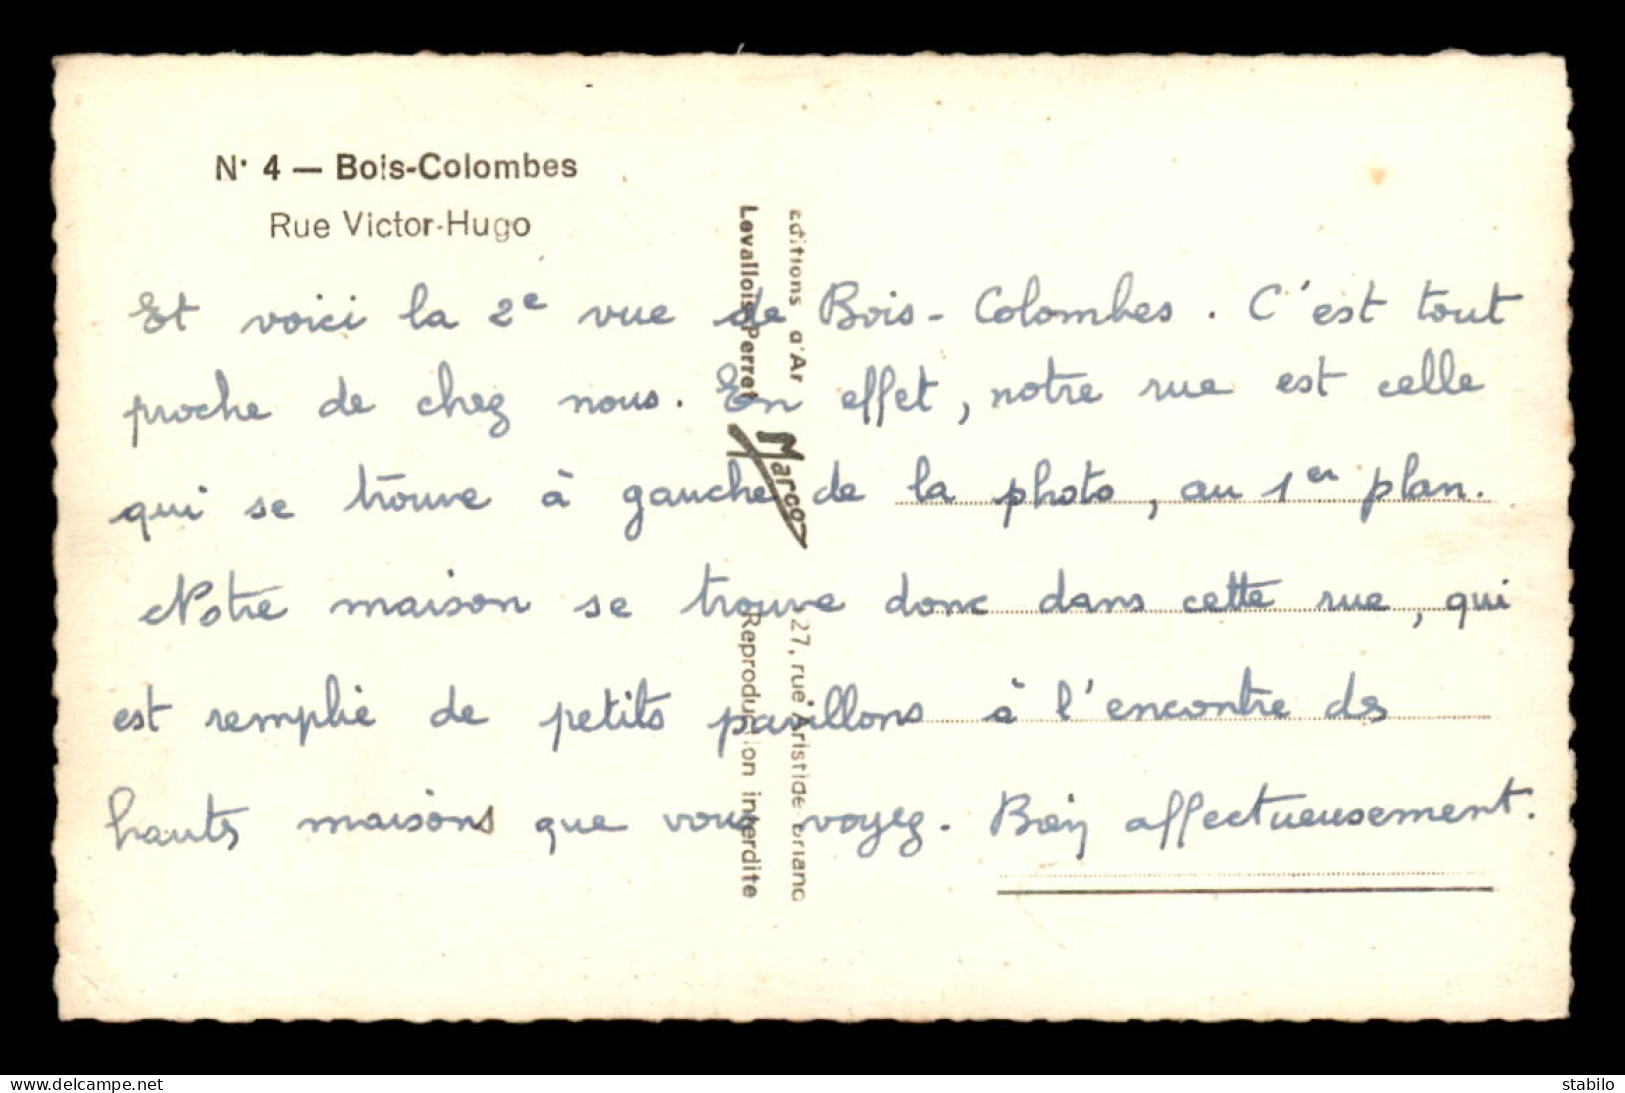 N° 4 — Bois-Colombes
Rue Victor-Hugo
Et voici la 2e vue de Bois-Colombes. C'est tout
proche de chez nous. En effet, notre rue est celle
qui se trouve à gauche de la photo, au 1er plan.
Notre maison se trouve donc dans cette rue, qui
est remplie de petits pavillons à l'encontre des
hauts maisons que vous voyez. Bien affectueusement.
Editions d'Ar
Levallois-Perret
Marco
27, rue Aristide Briand
Reproduction interdite
www.delcampe.net
stabilo